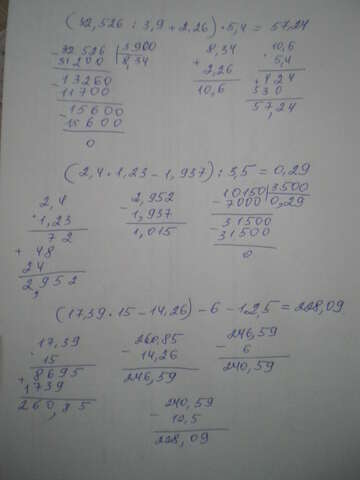 (32,526 : 3,9 + 2,26) · 5,4 = 57,24
- 32 526 | 3 900
31 200 8,34
- 13260
11700
- 15600
15600
0
8,34
+ 2,26
10,6
10,6
· 5,4
+ 424
530
57,24
(2,4 · 1,23 - 1,937) : 3,5 = 0,29
2,4
· 1,23
72
+ 48
24
2,952
- 2,952
1,937
1,015
- 10150 | 3500
7000 0,29
- 31500
31500
0
(17,39 · 15 - 14,26) - 6 - 12,5 = 228,09
17,39
· 15
+ 8695
1739
260,85
- 260,85
14,26
246,59
- 246,59
6
240,59
- 240,59
12,5
228,09